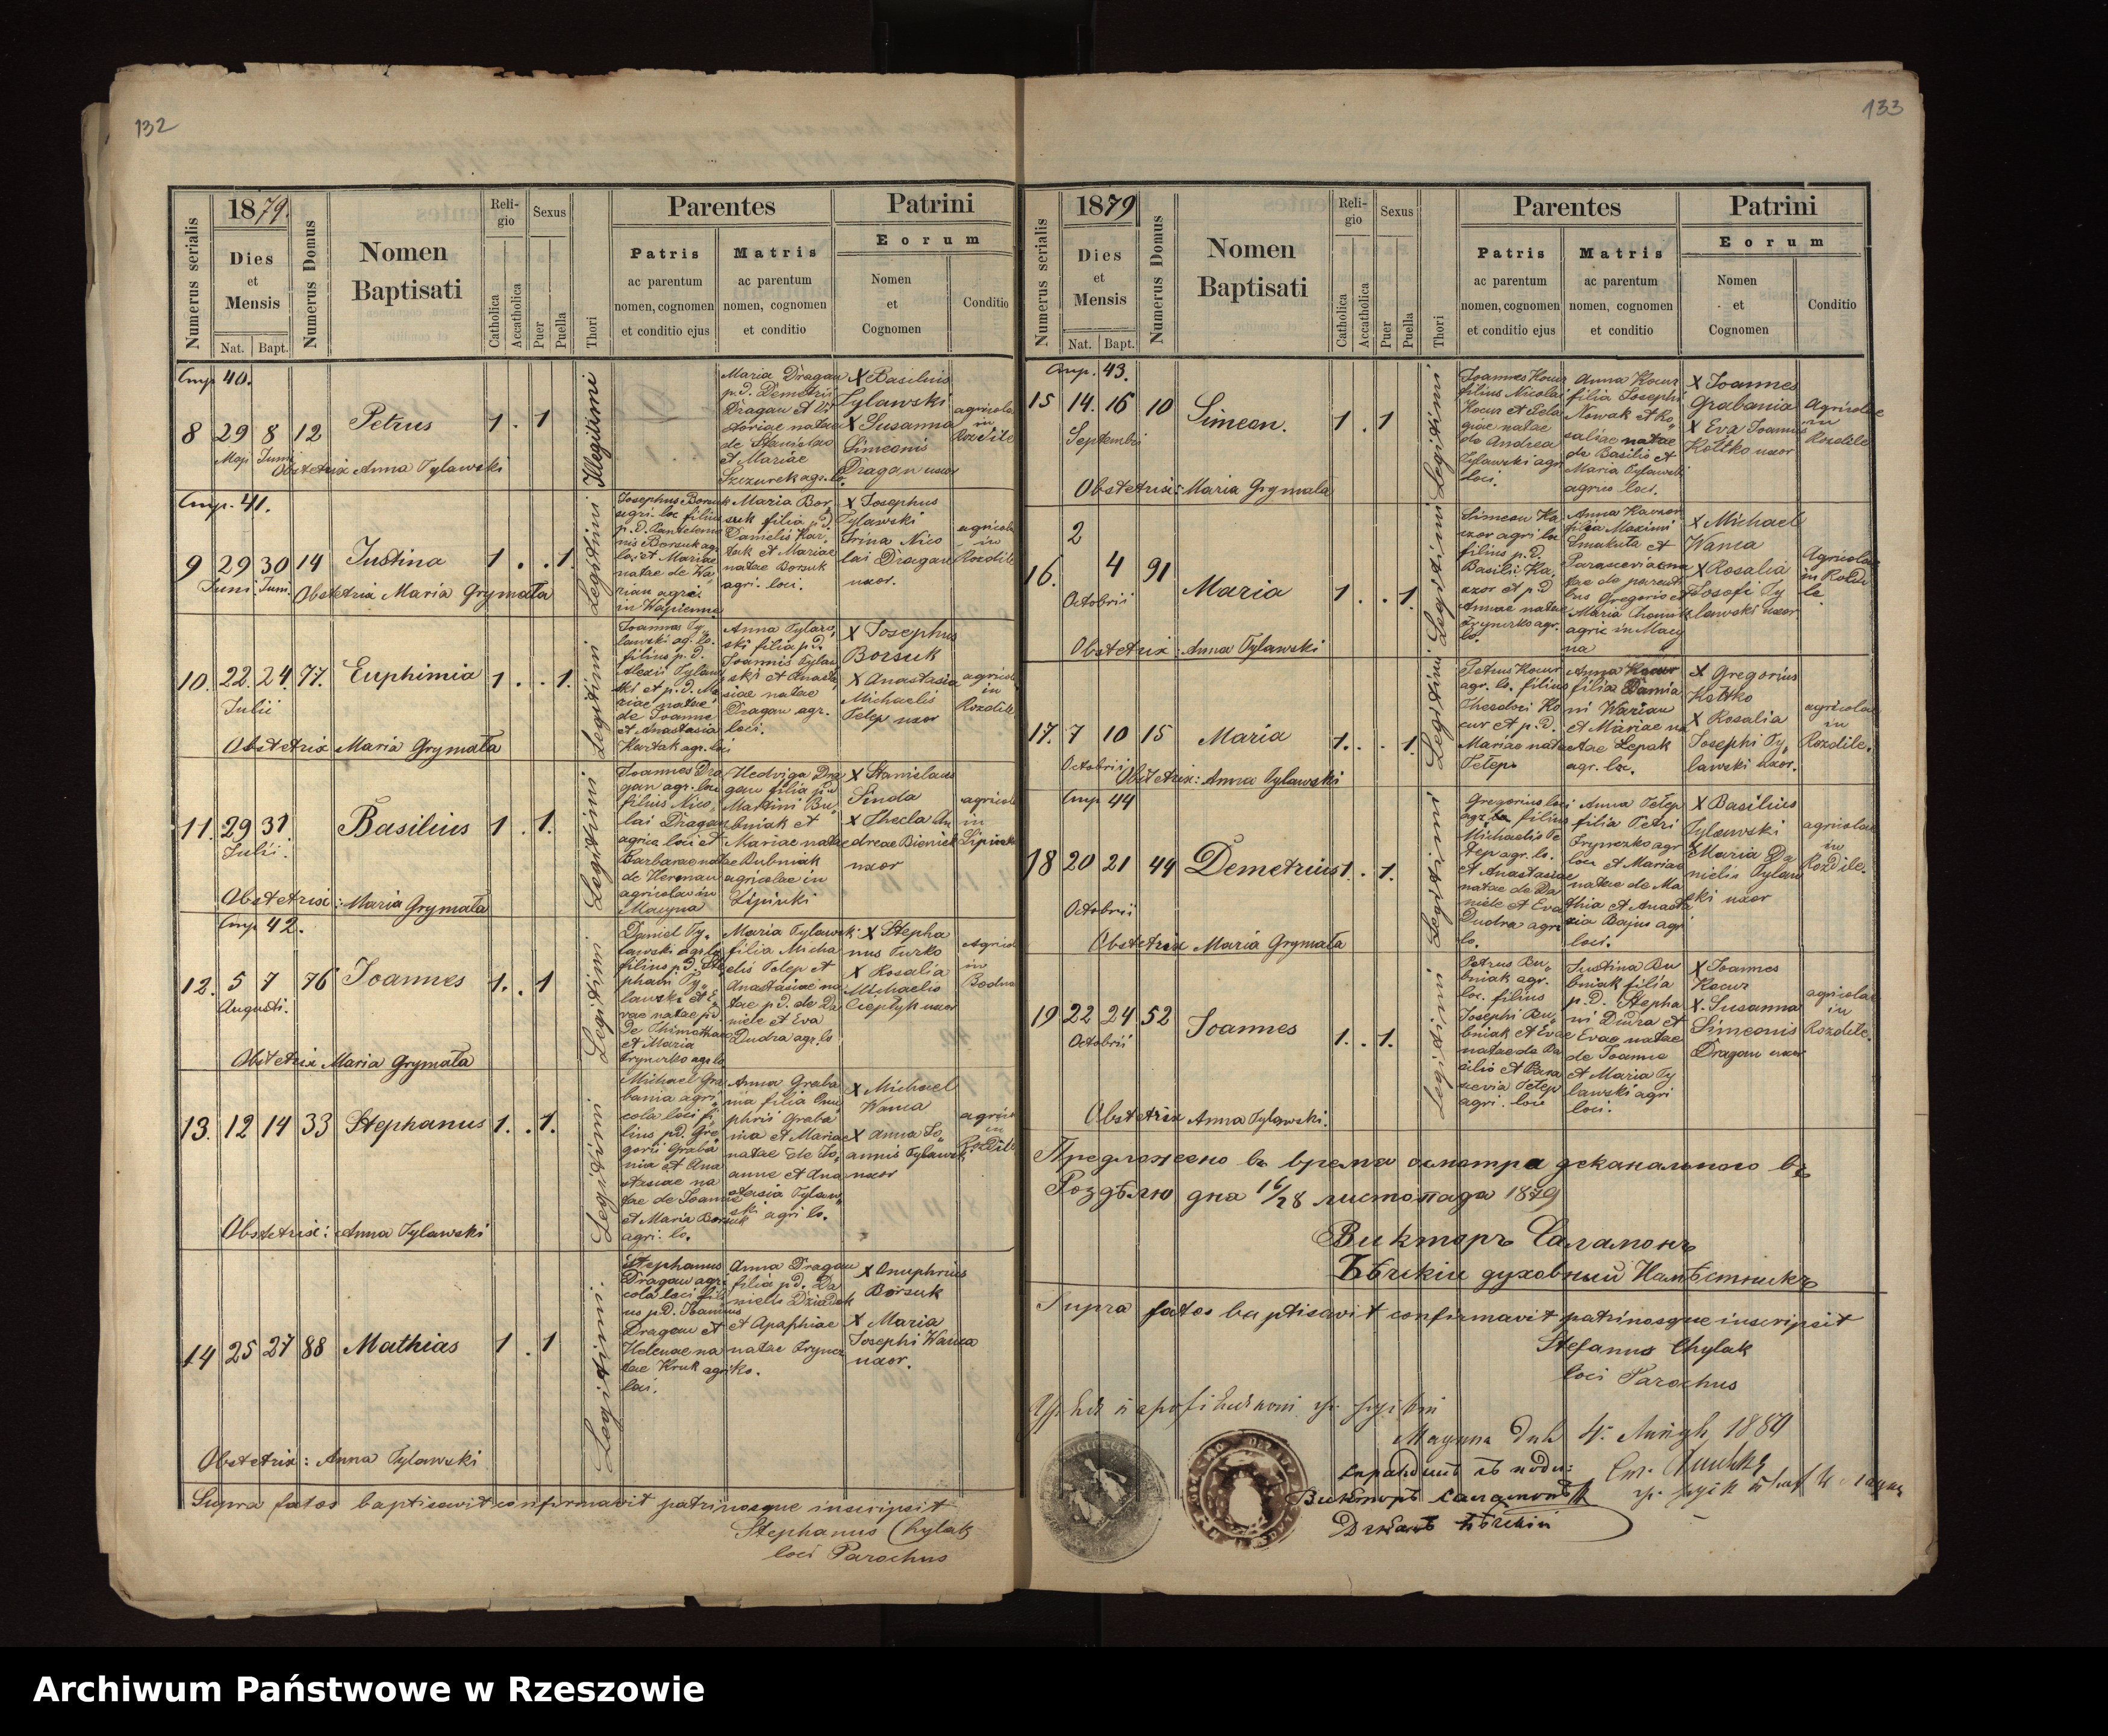 132
1879.
Numerus serialis
Dies
et
Mensis
Nat. Bapt.
Numerus Domus
Nomen
Baptisati
Reli-
gio
Catholica
Accatholica
Sexus
Puer
Puella
Thori
Parentes
Patris
ac parentum
nomen, cognomen
et conditio ejus
Matris
ac parentum
nomen, cognomen
et conditio
Patrini
Eorum
Nomen
et
Cognomen
Conditio
40.
8 29 8 12 Petrus 1 . 1
Maji Juni
Illegitimi
Maria Dragan
p.d. Demetrii
Dragan et Vi
ctoriae natae
de Stanislao
et Mariae
Szczurek agr. lo.
X Basilius
Tylawski
X Susanna
Simeonis
Dragan uxor
agricolae
in
Rozdile
Obstetrix Anna Tylawski
41.
9 29 30 14 Justina 1 . . 1.
Juni Juni
Legitimi
Josephus Borsuk
agri. loc filius
p.d. Pantelemo
nis Borsuk agr
loci et Mariae
natae de Wa
rian agric
in Wapienne
Maria Bor
suk filia p.d.
Danielis Kar,
tak et Mariae
natae Borsuk
agri. loci.
X Josephus
Tylawski
Irina Nico
lai Dragan
uxor.
agricolae
in
Rozdile
Obstetrix Maria Grymała
10. 22. 24. 77. Euphimia 1 . . 1.
Julii
Legitimi
Joannes Ty,
lawski ag. lo.
filius p.d.
Alexii Tylaw
ski et p.d. Ma
riae natae
de Joanne
et Anastasia
Kartak agr. loci
Anna Tylaw,
ski filia p.d.
Joannis Tylaw
ski et Anasta,
siae natae
Dragan agr.
loci.
X Josephus
Borsuk
X Anastasia
Michaelis
Telep uxor
agricol
in
Rozdile
Obstetrix Maria Grymała
11. 29 31. Basilius 1 . 1.
Julii.
Legitimi
Joannes Dra
gan agr. loci
filius Nico,
lai Dragan
agric loci et
Barbarae natae
de Herman
agricolae in
Macyna
Hedviga Dra
gan filia p.d
Martini Bu,
bniak et
Mariae natae
Bubniak
agricolae in
Lipinki
X Stanislaus
Sinda
X Thecla An
dreae Bieniek
uxor
agricol
in
Lipinki
Obstetrix: Maria Grymała
42.
12. 5 7 76 Joannes 1. . 1
Augusti.
Legitimi
Daniel Ty,
lawski agr. lo
filius p.d. Ste
phani Ty,
lawski et E,
vae natae p.d.
De Thimothea
et Maria
Fryncko agr. lo
Maria Tylawsk:
filia Micha
elis Telep et
Anastasiae na
tae p.d. de Da
niele et Eva
Dudra agr. lo
X Stepha
nus Turko
X Rosalia
Michaelis
Ciepłyk uxor
Agricol
in
Bodna
Obstetrix Maria Grymała
13. 12 14 33 Stephanus 1. . 1.
Legitimi
Michael Gra
bania agri,
cola loci fi,
lius p.d. Gre,
gorii Graba
nia et Ana
stasiae na
tae de Joanne
et Maria Borsuk
agri. lo.
Anna Graba
nia filia Onu
phrii Graba
nia et Mariae
natae de Jo,
anne et Ana
stasia Tylaw,
ski agri lo.
X Michael
Wanca
X Anna Jo,
annis Tylawsk.
uxor
agricol
in
Rozdile
Obstetrix: Anna Tylawski
14 25 27 88 Mathias 1 . 1
Legitimi.
Stephanus
Dragan agri
cola loci fili
us p.d. Joannis
Dragan et
Helenae na
tae Kruk agr.
loci.
Anna Dragan
filia p.d. Da
nielis Dziadek
et Apaphiae
natae Fryncz
ko.
X Onuphrius
Borsuk
X Maria
Josephi Wanca
uxor.
Obstetrix: Anna Tylawski
Supra fatos baptisavit confirmavit patrinosque inscripsit
Stephanus Chylak
loci Parochus
133
1879
Numerus serialis
Dies
et
Mensis
Nat. Bapt.
Numerus Domus
Nomen
Baptisati
Reli-
gio
Catholica
Accatholica
Sexus
Puer
Puella
Thori
Parentes
Patris
ac parentum
nomen, cognomen
et conditio ejus
Matris
ac parentum
nomen, cognomen
et conditio
Patrini
Eorum
Nomen
et
Cognomen
Conditio
43.
15 14. 16 10 Simeon. 1 . 1
Septembri
Legitimi
Joannes Kocur
filius Nicolai
Kocur et Pela
giae natae
de Andrea
Tylawski agr
loci.
Anna Kocur
filia Josephi
Nowak et Ro,
saliae natae
de Basilio et
Maria Tylawski
agric loci.
X Joannes
Grabania
X Eva Joannis
Kołtko uxor
Agricolae
in
Rozdile
Obstetrix: Maria Grymała
16. 2 4 91 Maria 1 . . 1.
Octobrii
Legitimi
Simeon Ka
czor agri lo
filius p.d.
Basilii Ka,
czor et p.d
Annae natae
Fryncko agr.
lo.
Anna Kaczor
filia Maximi
Smakuła et
Parasceviae na
tae de parent
bus Gregorio et
Maria Chomik
agric in Macy
na
X Michael
Wanca
X Rosalia
Josefi Ty
lawski uxor
Agricolae
in Rozdi
le.
Obstetrix: Anna Tylawski
17. 7 10 15 Maria 1. . . 1.
Octobrii
Legitimi
Petrus Kocur
agr. lo. filius
Theodori Ko
cur et p.d.
Mariae natae
Telep.
Anna Kocur
filia Damia
ni Warian
et Mariae na
tae Lepak
agr. loc.
X Gregorius
Kołtko
X Rosalia
Josephi Ty,
lawski uxor.
agricolae
in
Rozdile.
Obstetrix: Anna Tylawski
44
18 20 21 44 Demetrius 1. . 1.
Octobrii
Legitimi
Gregorius
filius
Michaelis Te
lep agr. lo.
et Anastasiae
natae de Da
niele et Eva
Dudra agri
lo.
Anna Telep
filia Petri
Frynczko agr
loci et Mariae
natae de Ma
thia et Anasta
sia Bajus agr
loci.
X Basilius
Tylawski
X Maria Da
nielis Tylaw
ski uxor
agricolae
in
Rozdile.
Obstetrix Maria Grymała
19 22 24 52 Joannes 1. . 1.
Octobrii
Legitimi
Petrus Bu,
bniak agr.
loc. filius
Josephi Bu,
bniak et Evae
natae de Ba
silio et Para
scevia Telep
agri. loci
Justina Bu
bniak filia
p.d. Stepha
ni Dudra et
Evae natae
de Joanne
et Maria Ty
lawski agri
loci.
X Joannes
Kocur
X. Susanna
Simeonis
Dragan uxor
agricolae
in
Rozdile.
Obstetrix Anna Tylawski.
Предложено въ время осмотра деканального въ
Роздѣлю дна 16/28 листопада 1879
Викторъ Саламонъ
Бѣчскій духовный Намѣстникъ
Supra fatos baptisavit confirmavit patrinosque inscripsit
Stefanus Chylak
loci Parochus
4.
Викторъ Саламонъ
Деканъ Бѣчскій
Archiwum Państwowe w Rzeszowie